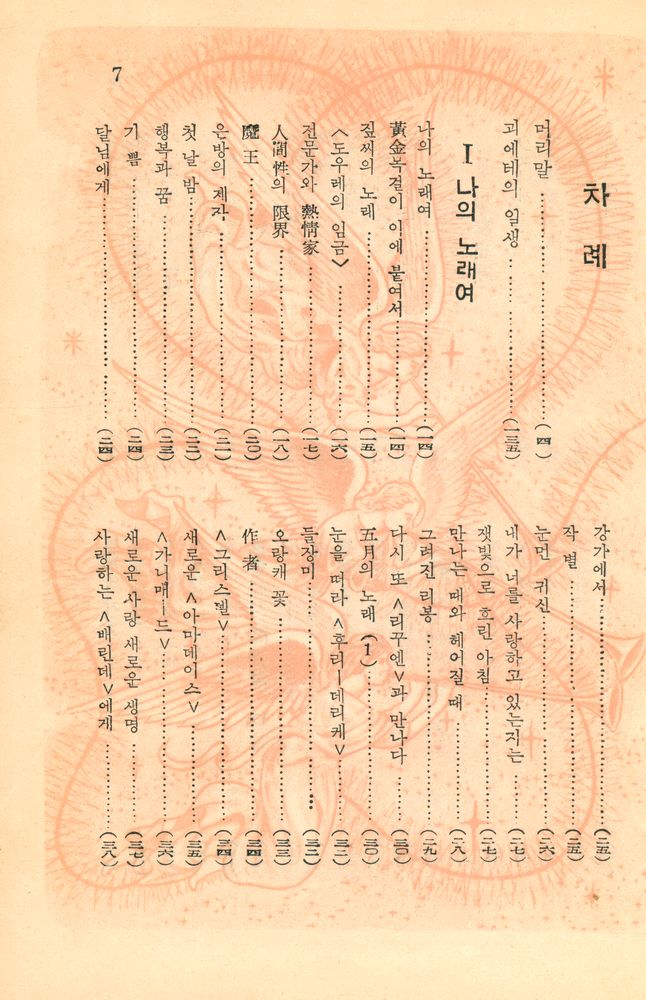 7
차 례
머리말……………………(四)
괴에테의 일생……………………(一三五)
I 나의 노래여
나의 노래여……………………(一四)
黃金목걸이 이에 붙여서……………………(一四)
짚씨의 노래……………………(一五)
〈도우레의 임금〉……………………(一六)
전문가와 熱情家……………………(一七)
人間性의 限界……………………(一八)
魔王……………………(二〇)
은방의 제자……………………(二一)
첫날밤……………………(二二)
행복과 꿈……………………(二三)
기쁨……………………(二四)
달님에게……………………(二四)
강가에서……………………(二五)
작별……………………(二五)
눈먼 귀신……………………(二六)
내가 너를 사랑하고 있는지는……………………(二七)
잿빛으로 흐린 아침……………………(二七)
만나는 때와 헤어질 때……………………(二八)
그려진 리봉……………………(二九)
다시 또 〈리꾸엔〉과 만나다……………………(三〇)
五月의 노래 (1)……………………(三〇)
눈을 떠라 〈후리ー데리케〉……………………(三一)
들장미……………………(三二)
오랑캐 꽃……………………(三三)
作者……………………(三四)
〈그리스델〉……………………(三四)
새로운 〈아마데이스〉……………………(三五)
〈가니매ー드〉……………………(三六)
새로운 사랑 새로운 생명……………………(三七)
사랑하는 〈배린데〉에게……………………(三八)